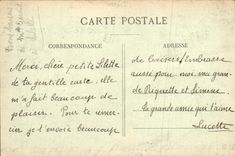 CARTE POSTALE
CORRESPONDANCE
ADRESSE
Merci, chère petite
de ta gentille carte. elle
m'a fait beaucoup de
plaisir. Pour te remer-
cier je t'envoie beaucoup
de baisers. Embrasse
aussi pour moi ma gran-
de Riquette et Simone.
ta grande amie qui t'aime
Lucette